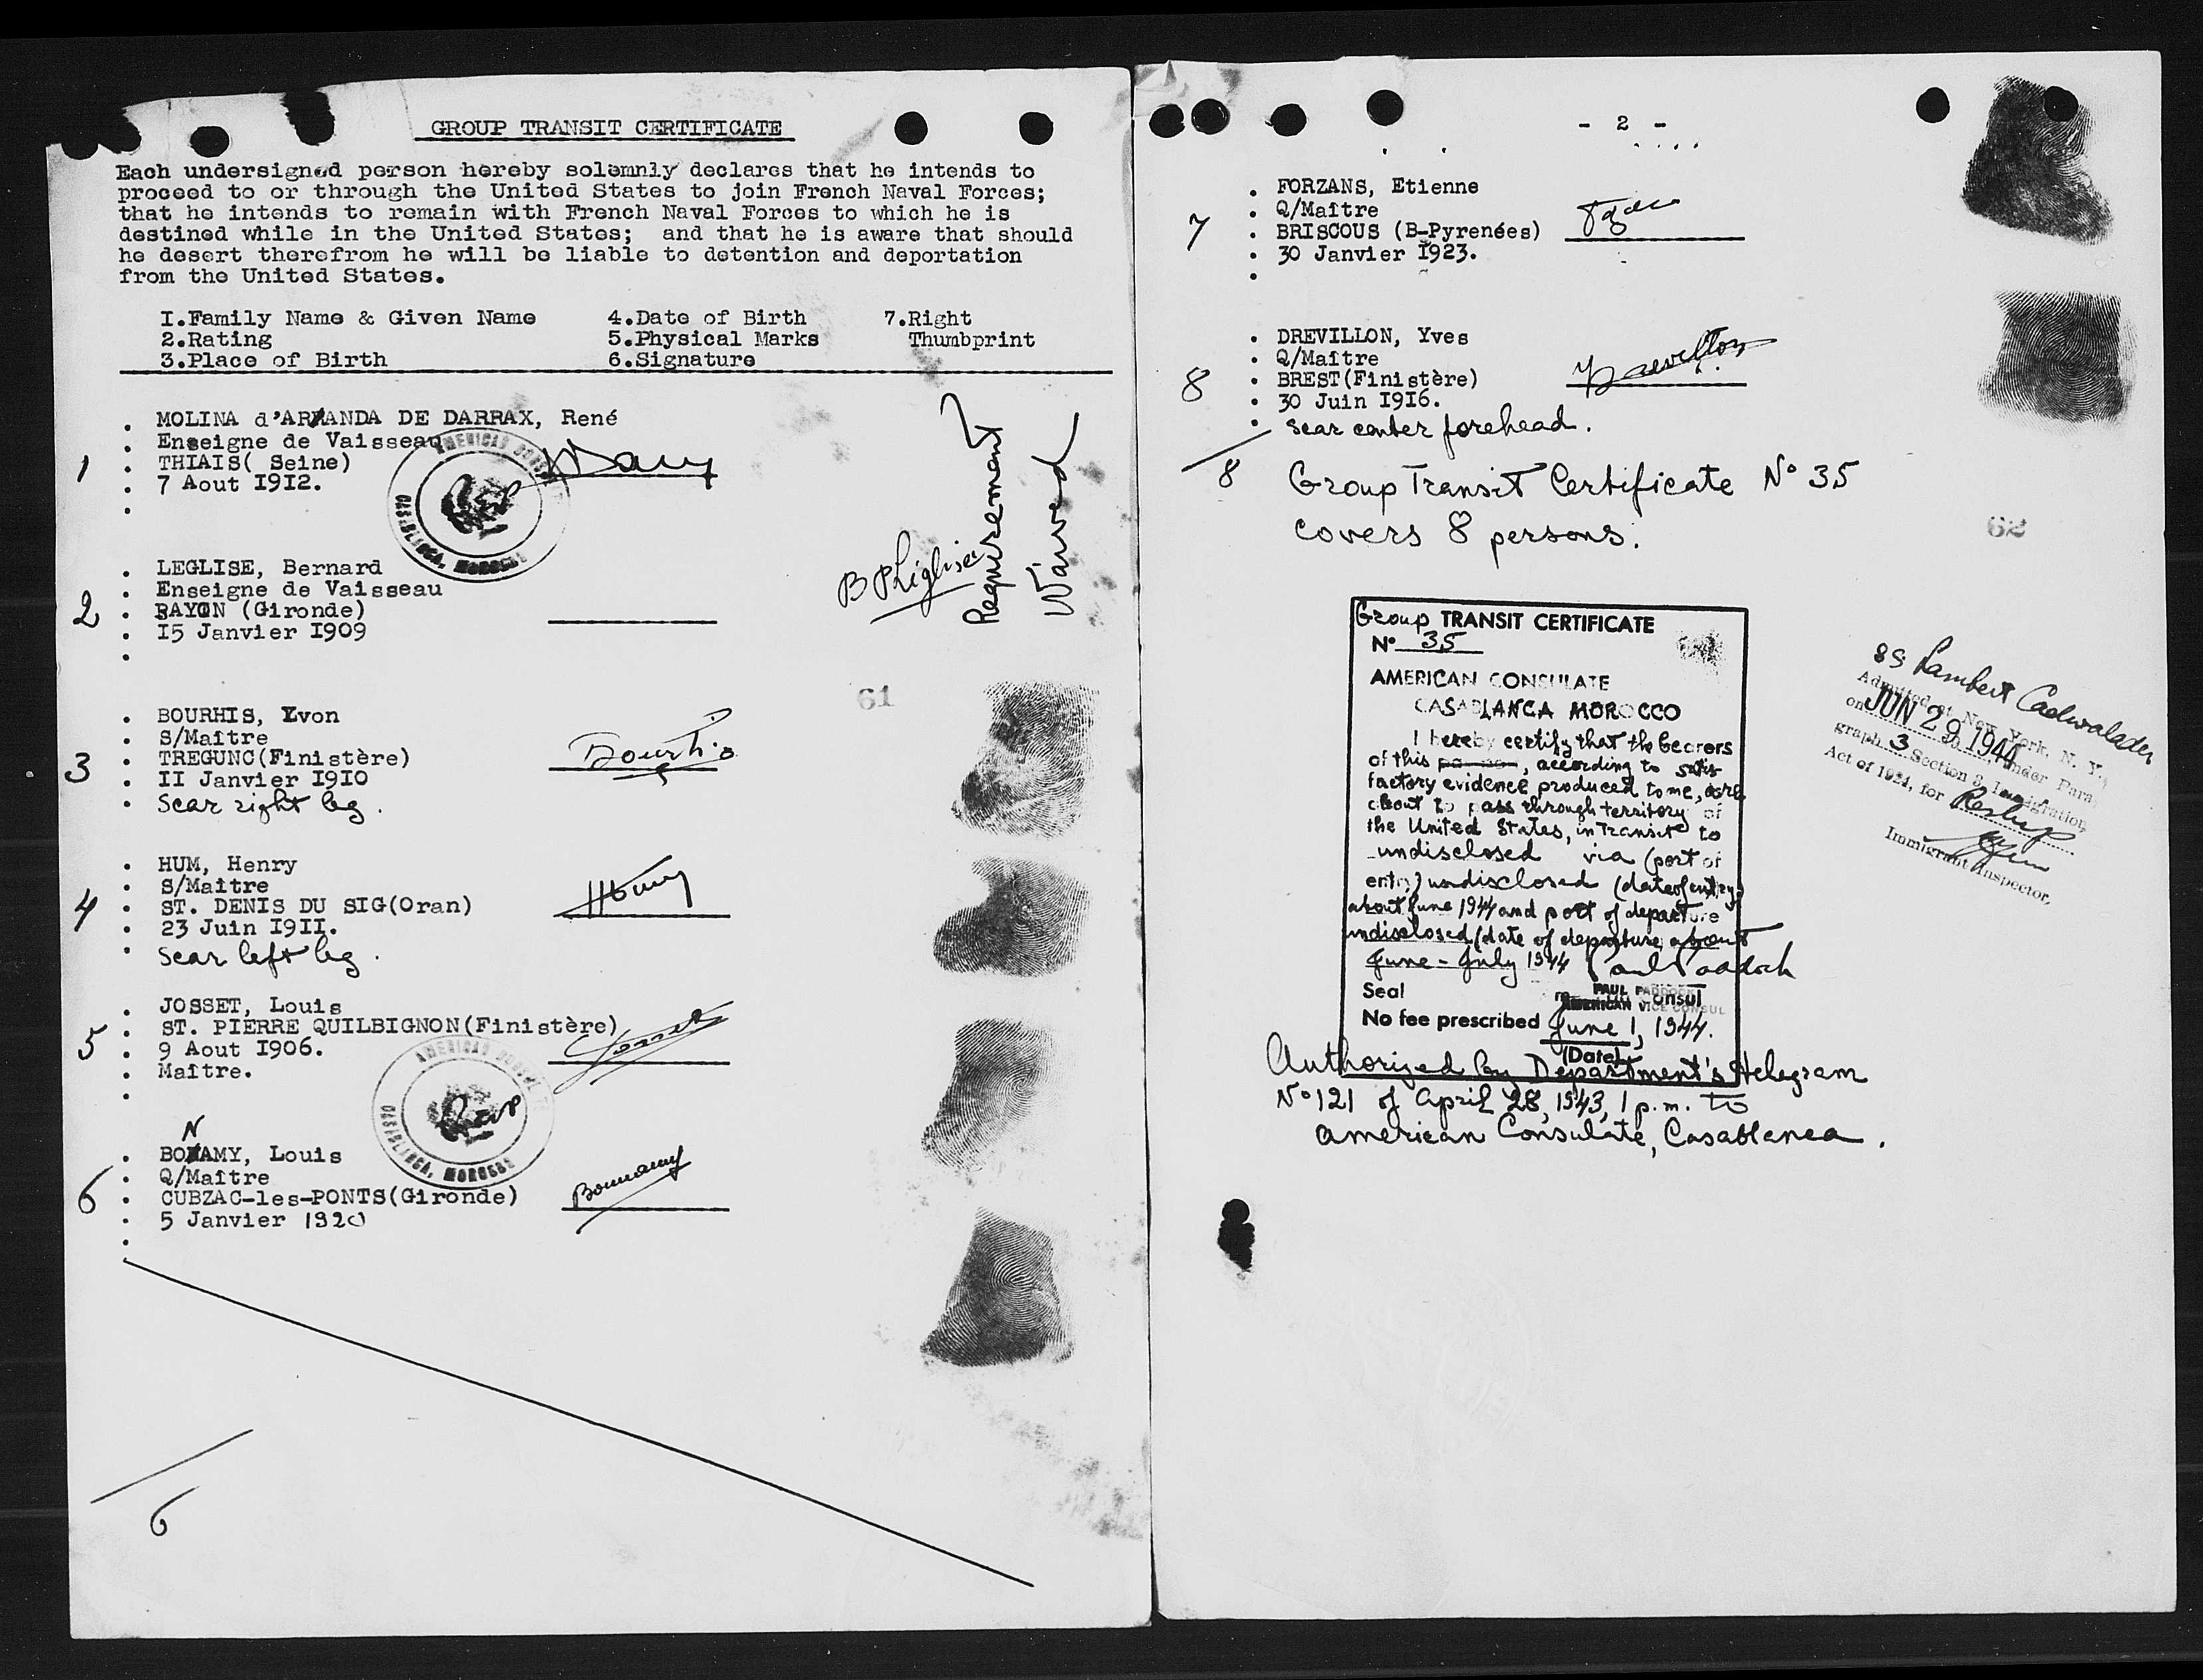 GROUP TRANSIT CERTIFICATE
Each undersigned person hereby solemnly declares that he intends to
proceed to or through the United States to join French Naval Forces;
that he intends to remain with French Naval Forces to which he is
destined while in the United States; and that he is aware that should
he desert therefrom he will be liable to detention and deportation
from the United States.
I.Family Name & Given Name 4.Date of Birth 7.Right
2.Rating 5.Physical Marks Thumbprint
3.Place of Birth 6.Signature
MOLINA d'ARANDA DE DARRAX, René
Enseigne de Vaisseau
1 THIAIS( Seine)
7 Aout I9I2.
AMERICAN
CASABLANCA, MOROCCO
LEGLISE, Bernard
Enseigne de Vaisseau
2 BAYON (Gironde)
I5 Janvier I909
B P Léglise
Requirement
Waived
61
BOURHIS, Yvon
S/Maître
3 TREGUNC(Finistère)
II Janvier I9IO
Scar right leg.
Bourhis
HUM, Henry
S/Maître
4 ST. DENIS DU SIG(Oran)
23 Juin I9II.
Scar left leg.
JOSSET, Louis
ST. PIERRE QUILBIGNON(Finistère)
5 9 Aout I906.
Maître.
AMERICAN
CASABLANCA, MOROCCO
N
BONAMY, Louis
Q/Maître
6 CUBZAC-les-PONTS(Gironde)
5 Janvier 1920
Bonnamy
6
- 2 -
FORZANS, Etienne
Q/Maître
7 BRISCOUS (B-Pyrenées)
30 Janvier I923.
DREVILLON, Yves
Q/Maître
8 BREST(Finistère)
30 Juin I9I6.
Scar center forehead.
Drevillon
8 Group Transit Certificate No 35
covers 8 persons.
62
Group TRANSIT CERTIFICATE
No 35
AMERICAN CONSULATE
CASABLANCA MOROCCO
I hereby certify that the bearers
of this, according to satis
factory evidence produced to me, are
about to pass through territory of
the United States, in transit to
undisclosed via (port of
entry) undisclosed (date of entry)
about June 1944 and port of departure
undisclosed (date of departure) about
June - July 1944 Paul Paddock
Seal PAUL PADDOCK
AMERICAN VICE CONSUL
No fee prescribed June 1, 1944.
(Date)
Authorized by Department's telegram
No 121 of April 28, 1943, 1 p.m. to
American Consulate, Casablanca.
SS Lambert Cadwalader
Admitted at New York, N. Y.
on JUN 29 1944, under Para-
graph 3 Section 3, Immigration
Act of 1924, for Reship
Immigrant Inspector.